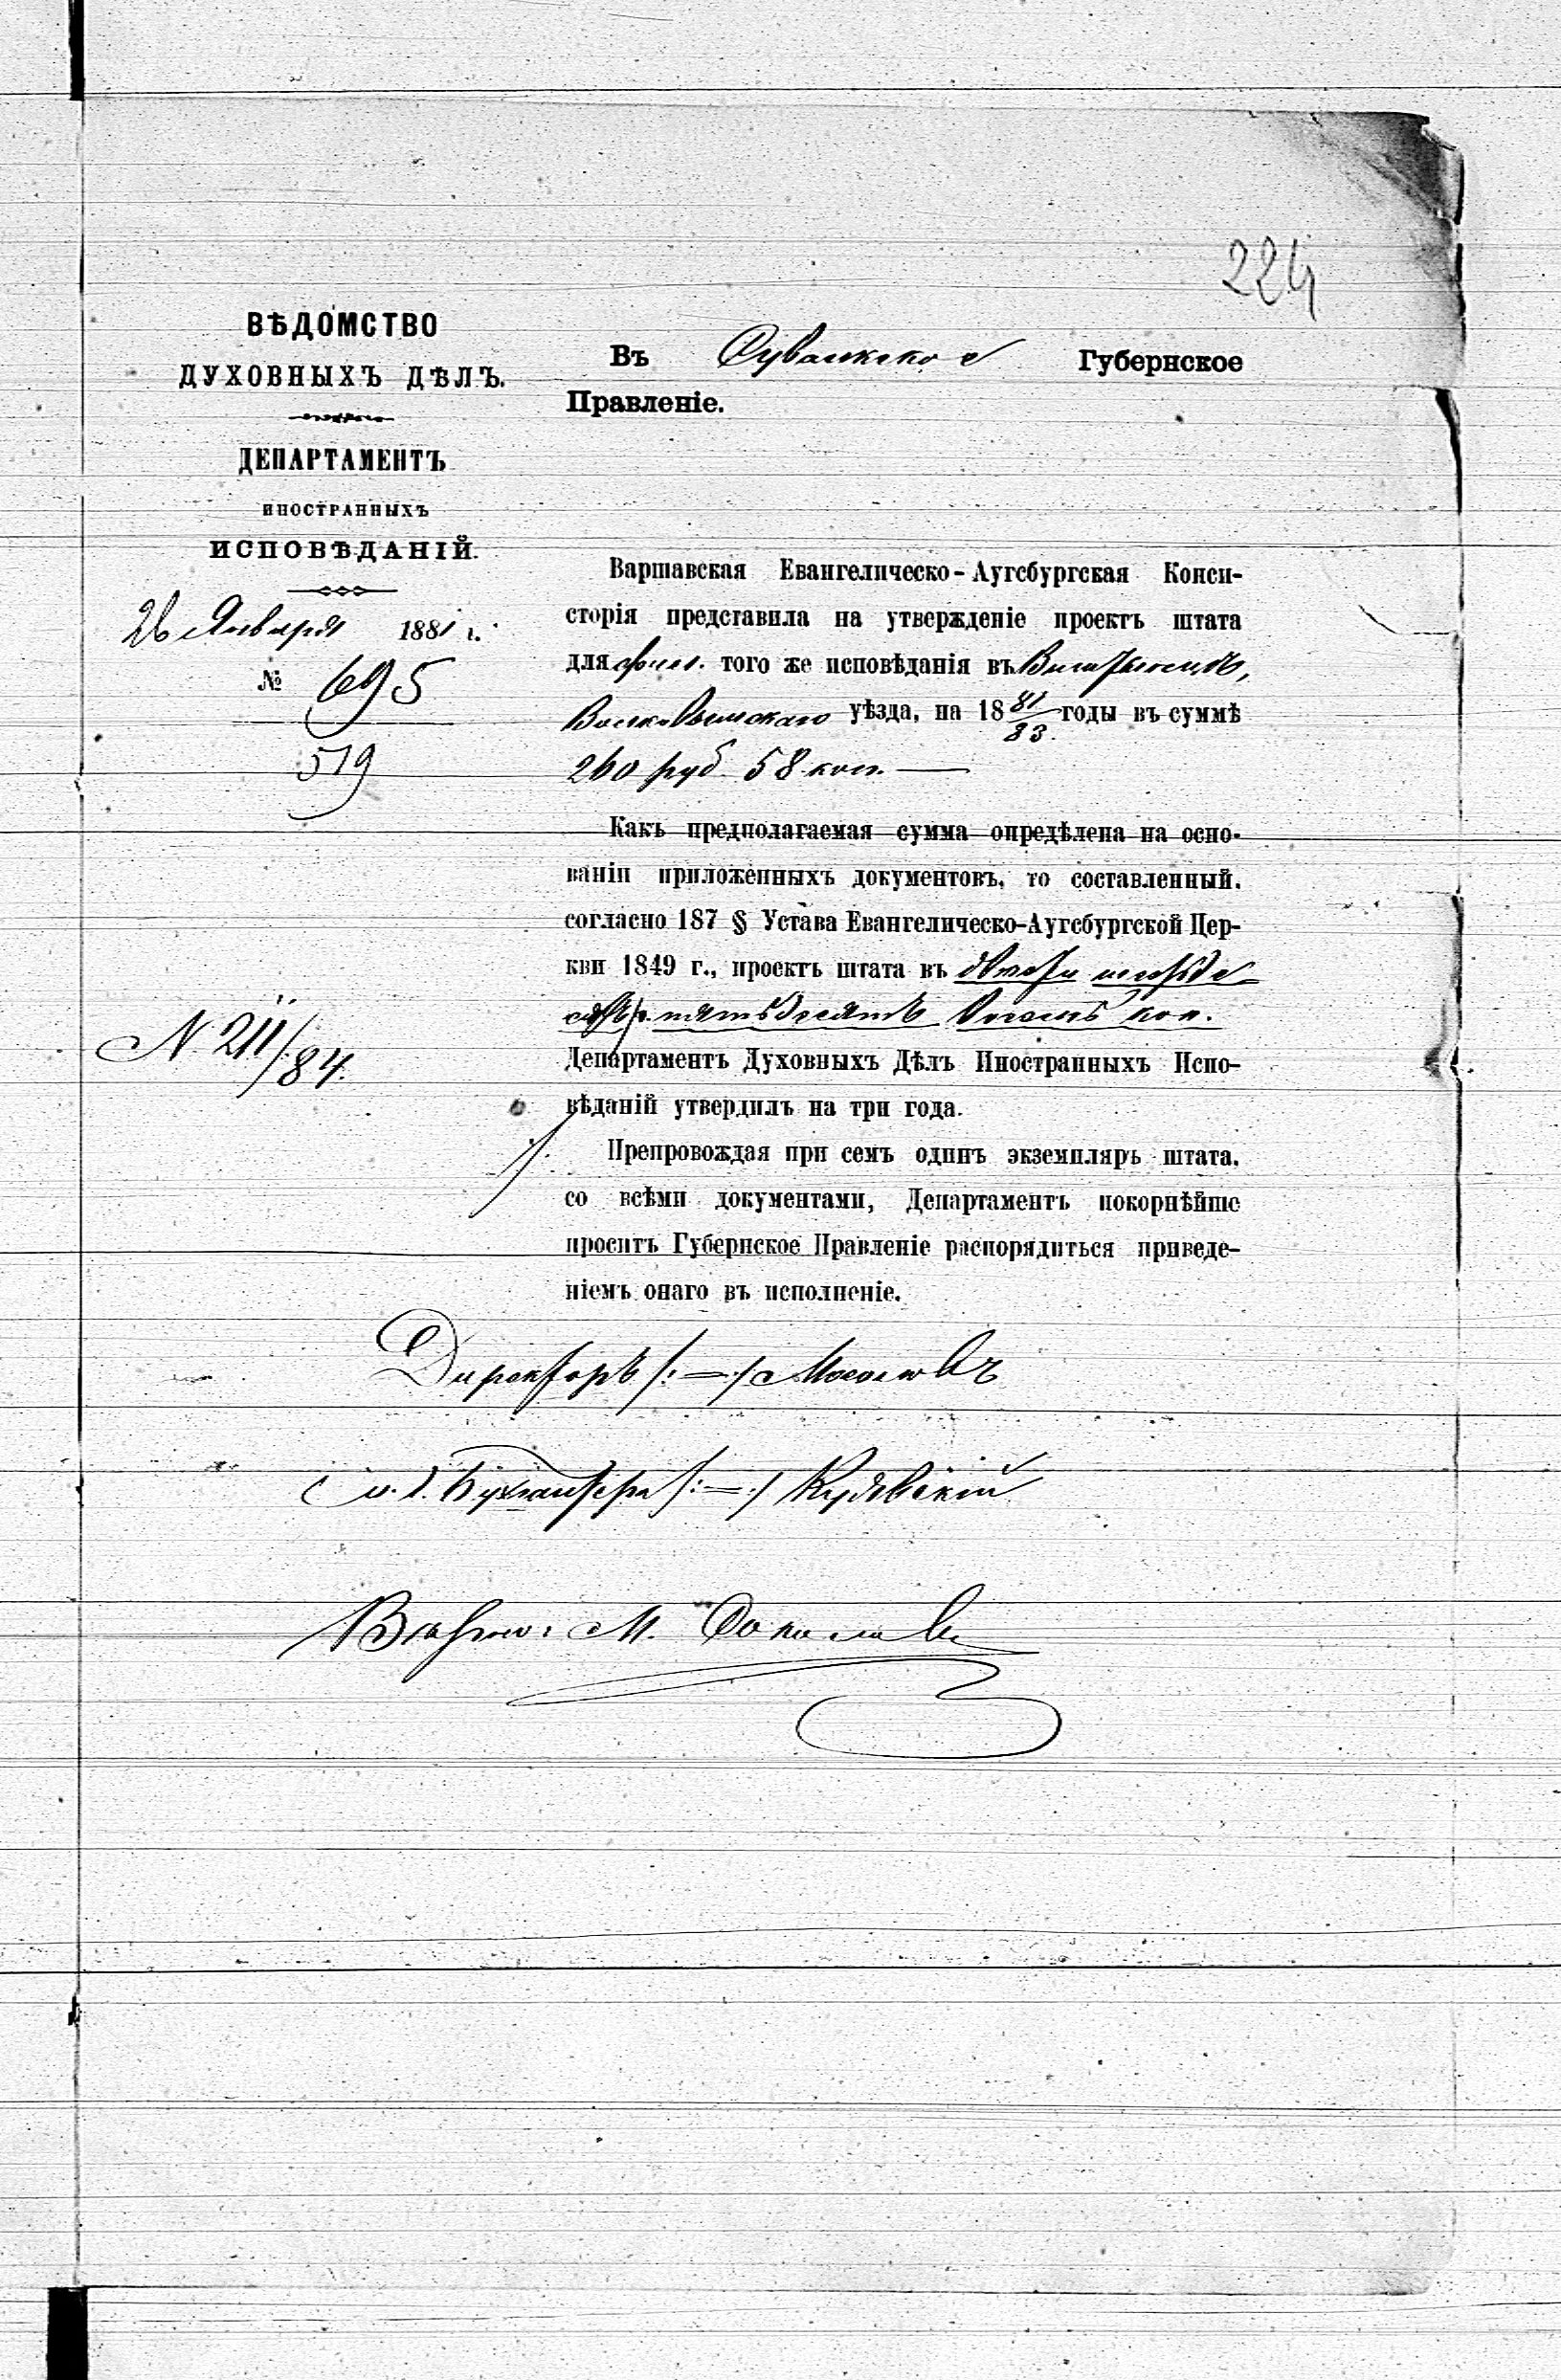 224
ВѢДОМСТВО
ДУХОВНЫХЪ ДѢЛЪ.
ДЕПАРТАМЕНТЪ
ИНОСТРАННЫХЪ
ИСПОВѢДАНІЙ.
26 Января 1881 г.
№ 695
519
N 211/84.
Въ Сувалкское Губернское
Правленіе.
Варшавская Евангелическо-Аугсбургская Конси-
сторія представила на утвержденіе проектъ штата
для фил. того же исповѣданія въ
Волковышскаго уѣзда, на 18 81/83 годы въ суммѣ
260 руб 58 коп.
Какъ предполагаемая сумма опредѣлена на осно-
ваніи приложенныхъ документовъ, то составленный,
согласно 187 § Устава Евангелическо-Аугсбургской Цер-
кви 1849 г., проектъ штата въ двѣсти шестьде-
сятъ р. пятьдесятъ восемь коп.
Департаментъ Духовныхъ Дѣлъ Иностранныхъ Испо-
вѣданій утвердилъ на три года.
Препровождая при семъ одинъ экземпляръ штата,
со всѣми документами, Департаментъ покорнѣйше
проситъ Губернское Правленіе распорядиться приведе-
ніемъ онаго въ исполненіе.
Директоръ /:—:/ Мосоловъ
и. д. Бухгалтера /:—:/ Кудявскій
Вѣрно: М. Соколовъ